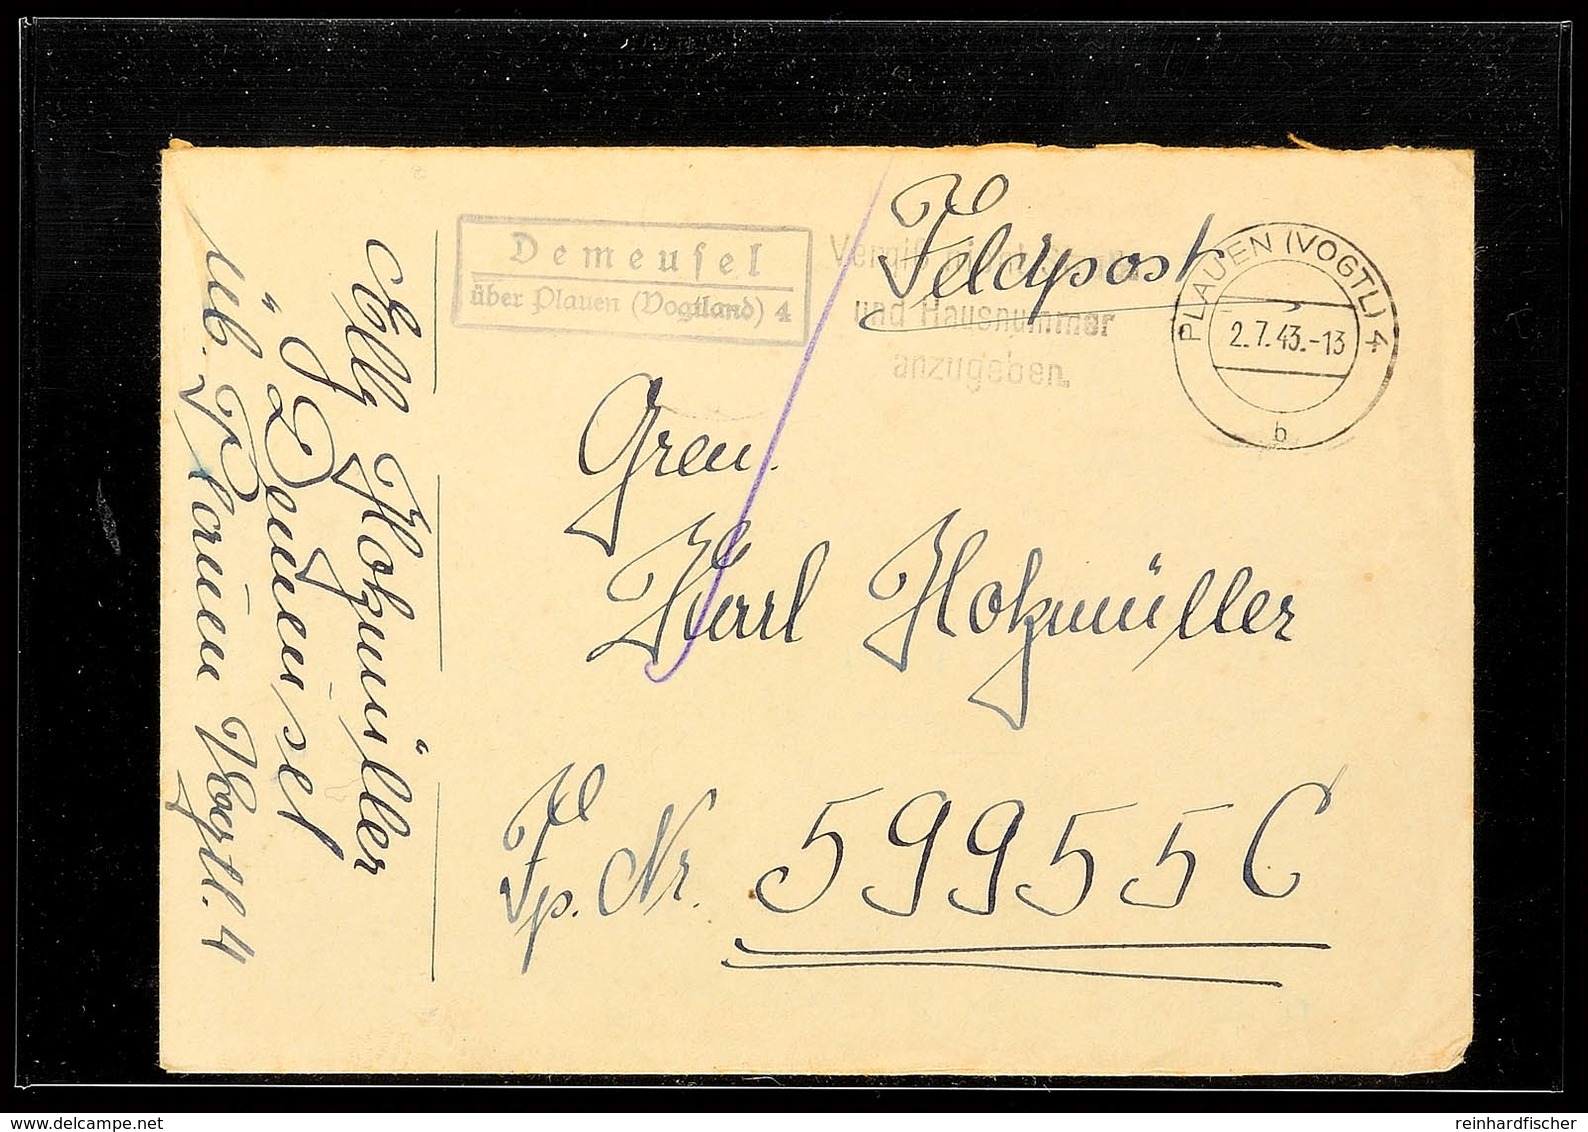 Demeusel
über Plauen (Vogtland) 4
Feldpost
Vergiß nicht
und Hausnummer
anzugeben.
PLAUEN (VOGTL) 4
2.7.43.-13
b
Gren.
Karl Holzmüller
Fp. Nr. 59955 C
Elly Holzmüller
Demeusel
üb. Plauen Vogtl. 4
delcampe.net
reinhardfischer